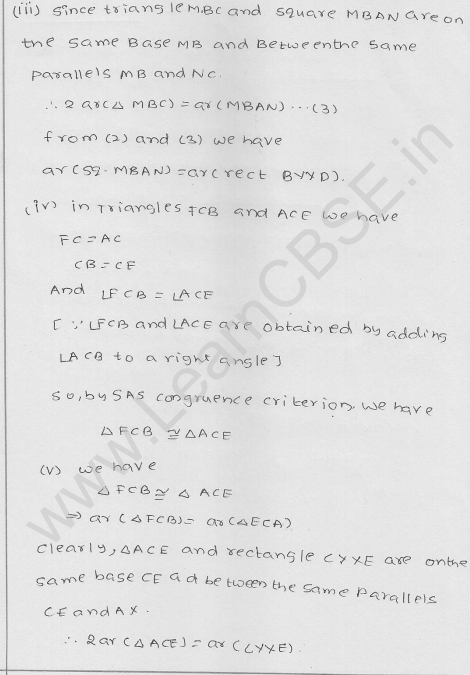 (iii) Since triangle MBC and square MBAN are on
the same Base MB and Between the same
parallels MB and NC.
∴ 2 ar(△ MBC) = ar(MBAN) ...(3)
from (2) and (3) we have
ar(sq. MBAN) = ar(rect BYXD).
(iv) in Triangles FCB and ACE we have
FC = AC
CB = CE
And ∠FCB = ∠ACE
[∵ ∠FCB and ∠ACE are obtained by adding
∠ACB to a right angle]
so, by SAS congruence criterion, we have
△ FCB ≅ △ACE
(v) we have
△ FCB ≅ △ ACE
⇒ ar (△FCB) = ar(△ECA)
clearly, △ACE and rectangle CYXE are on the
same base CE ad between the same parallels
CE and AX.
∴ 2ar(△ACE) = ar(CYXE).
www.LearnCBSE.in